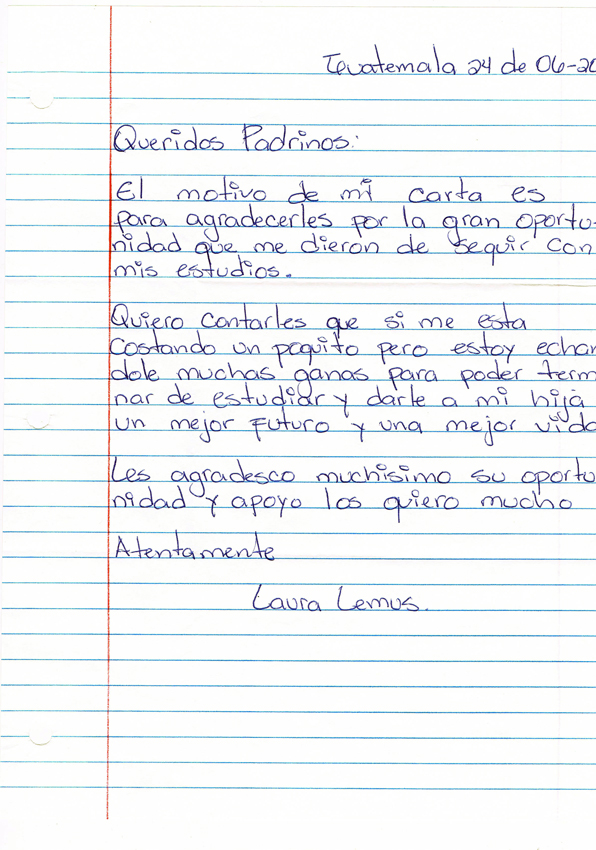 Guatemala 24 de 06-20
Queridos Padrinos:
El motivo de mi carta es
para agradecerles por la gran oportu-
nidad que me dieron de seguir con
mis estudios.
Quiero contarles que si me esta
costando un poquito pero estoy echan
dole muchas ganas para poder term
nar de estudiar y darle a mi hija
un mejor futuro y una mejor vida
Les agradesco muchisimo su oportu
nidad y apoyo los quiero mucho
Atentamente
Laura Lemus.